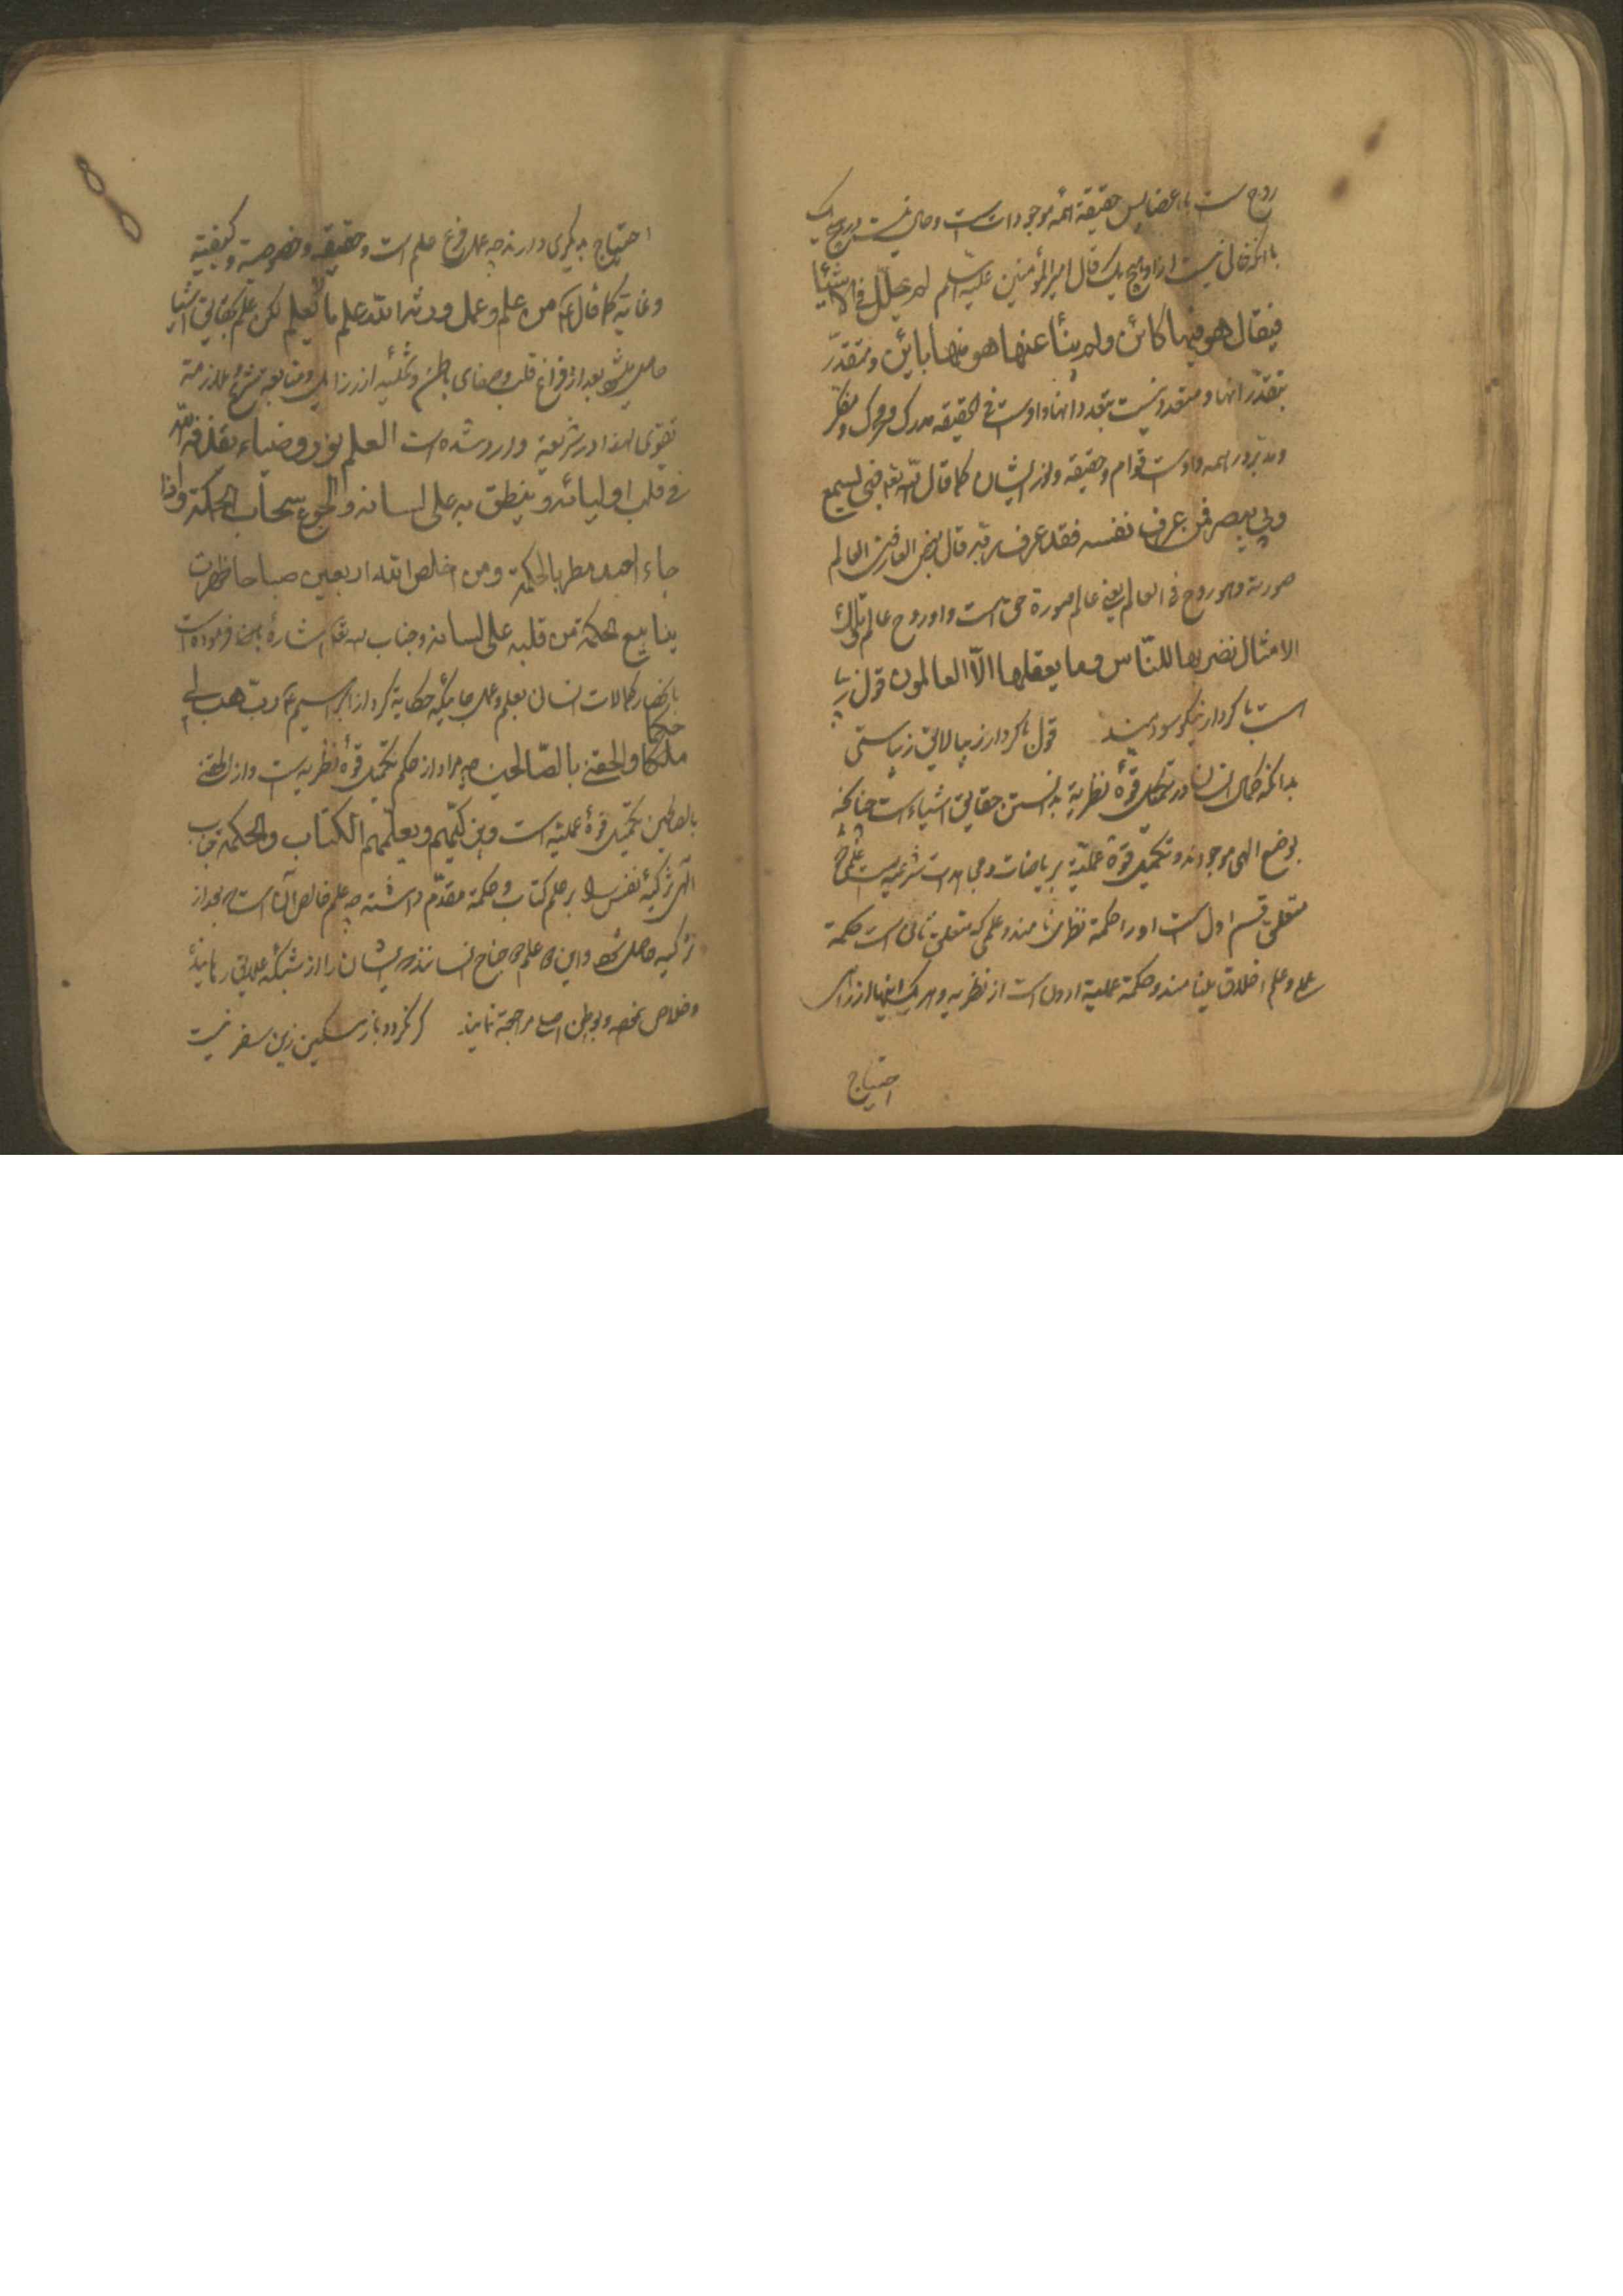 روح است با اعضا پس حقیقة همه موجودات است و حال نیست در هیچ یک
با آنکه خالی نیست ازو هیچ یک قال امیر المؤمنین علیه السلم لم یحلل فی الاشیا
فیقال هو فیها کائن ولم ینأ عنها هو منها باین و متقدر
بتقدر آنها و متعدد نیست بتعدد آنها و اوست فی الحقیقه مدرک و محرک و مفکر
و مدبر در همه و اوست قوام و حقیقه و نور ایشان کما قال الله تعه فبی یسمع
وبی یبصر فمن عرف نفسه فقد عرف ربه قال بعض العارفین العالم
صورته وهو روح فی العالم یعنی عالم صورة حق است و او روح عالم تلک
الامثال نضربها للناس وما یعقلها الا العالمون قول زیبا
است با کردار نیکو سودمند قول با کردار زیبا لایق زیباستی
بدانکه کمال انسان در تکمیل قوۀ نظریه بدانستن حقایق اشیاء است چنانچه
بوضع الهی موجودند و تکمیل قوۀ عملیّه بریاضات و مجاهدات شرعیه است علمی که
متعلق بقسم اول است او را حکمة نظری نامند و علمی که متعلق بثانی است حکمة
عملی و علم اخلاق مینامند و حکمة عملیه ادون است از نظریه و هر یک اینها را
احتیاج
احتیاج بدیگری دارند چه عمل فرع علم است و حقیقه و خصوصیة و کیفیة
و غایة کما قال ع من علم وعمل ورثه الله علم ما لم یعلم لکن علم بحقایق اشیا
حاصل میشود بعد از فراغ قلب و صفای باطن و تخلیه از رزایل و متابعة شرع و ملازمة
تقوی لهذا در شریعة وارد شده است العلم نور وضیاء یقذفه الله
فی قلب اولیائه وینطق به علی لسانه والجوع سحاب الحکمة واذا
جاء العبد مطر بالحکمة ومن اخلص لله اربعین صباحا ظهرت
ینابیع الحکمة من قلبه علی لسانه و جناب اله تعه اشاره باین فرموده است
بانحصار کمالات انسان بعلم و عمل جائیکه حکایة کرد از ابراهیم ع رب هب لی حکما
ملحقا والحقنی بالصّالحین چه مراد از حکم تکمیل قوۀ نظریه است و از الحقنی
بالصالحین تکمیل قوۀ عملیه است و یزکیهم ویعلمهم الکتاب والحکمة جناب
الهی تزکیۀ نفس را بر علم کتاب و حکمة مقدّم داشته چه علم خالص آن است که بعد از
تزکیه حاصل شود و این علم جناح انسانند که ایشان را از شبکۀ علایق رهانیده
و خلاص نموده و بوطن اصلی مراجعة نمایند گر نگردد باز مسکین زین سفر نیست